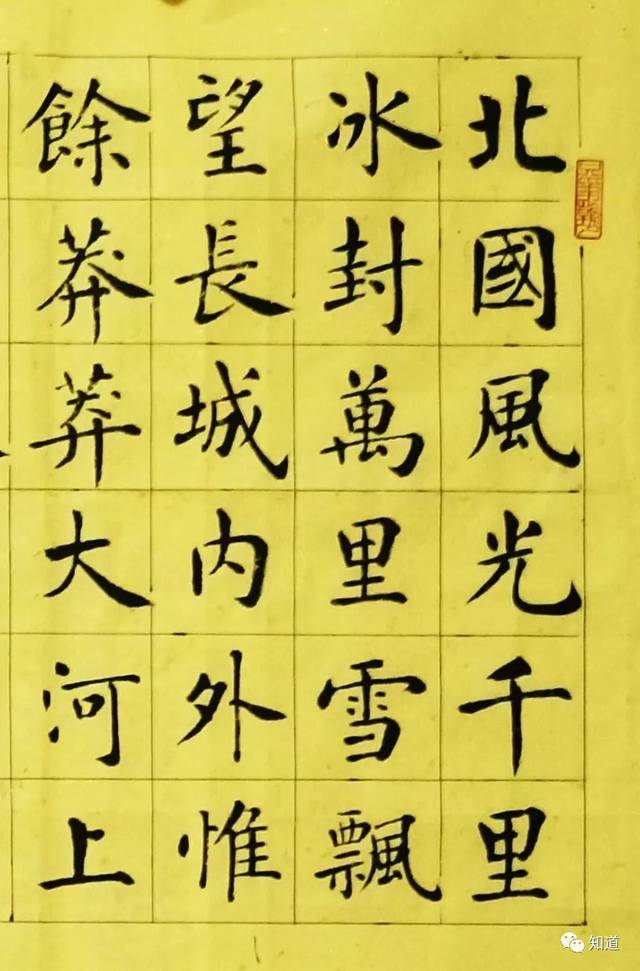 北國風光千里
冰封萬里雪飄
望長城内外惟
餘莽莽大河上
知道